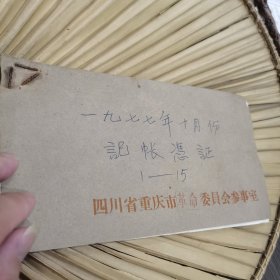 一九七七年十月份
記帐憑証
1——15
四川省重庆市革命委員会参事室